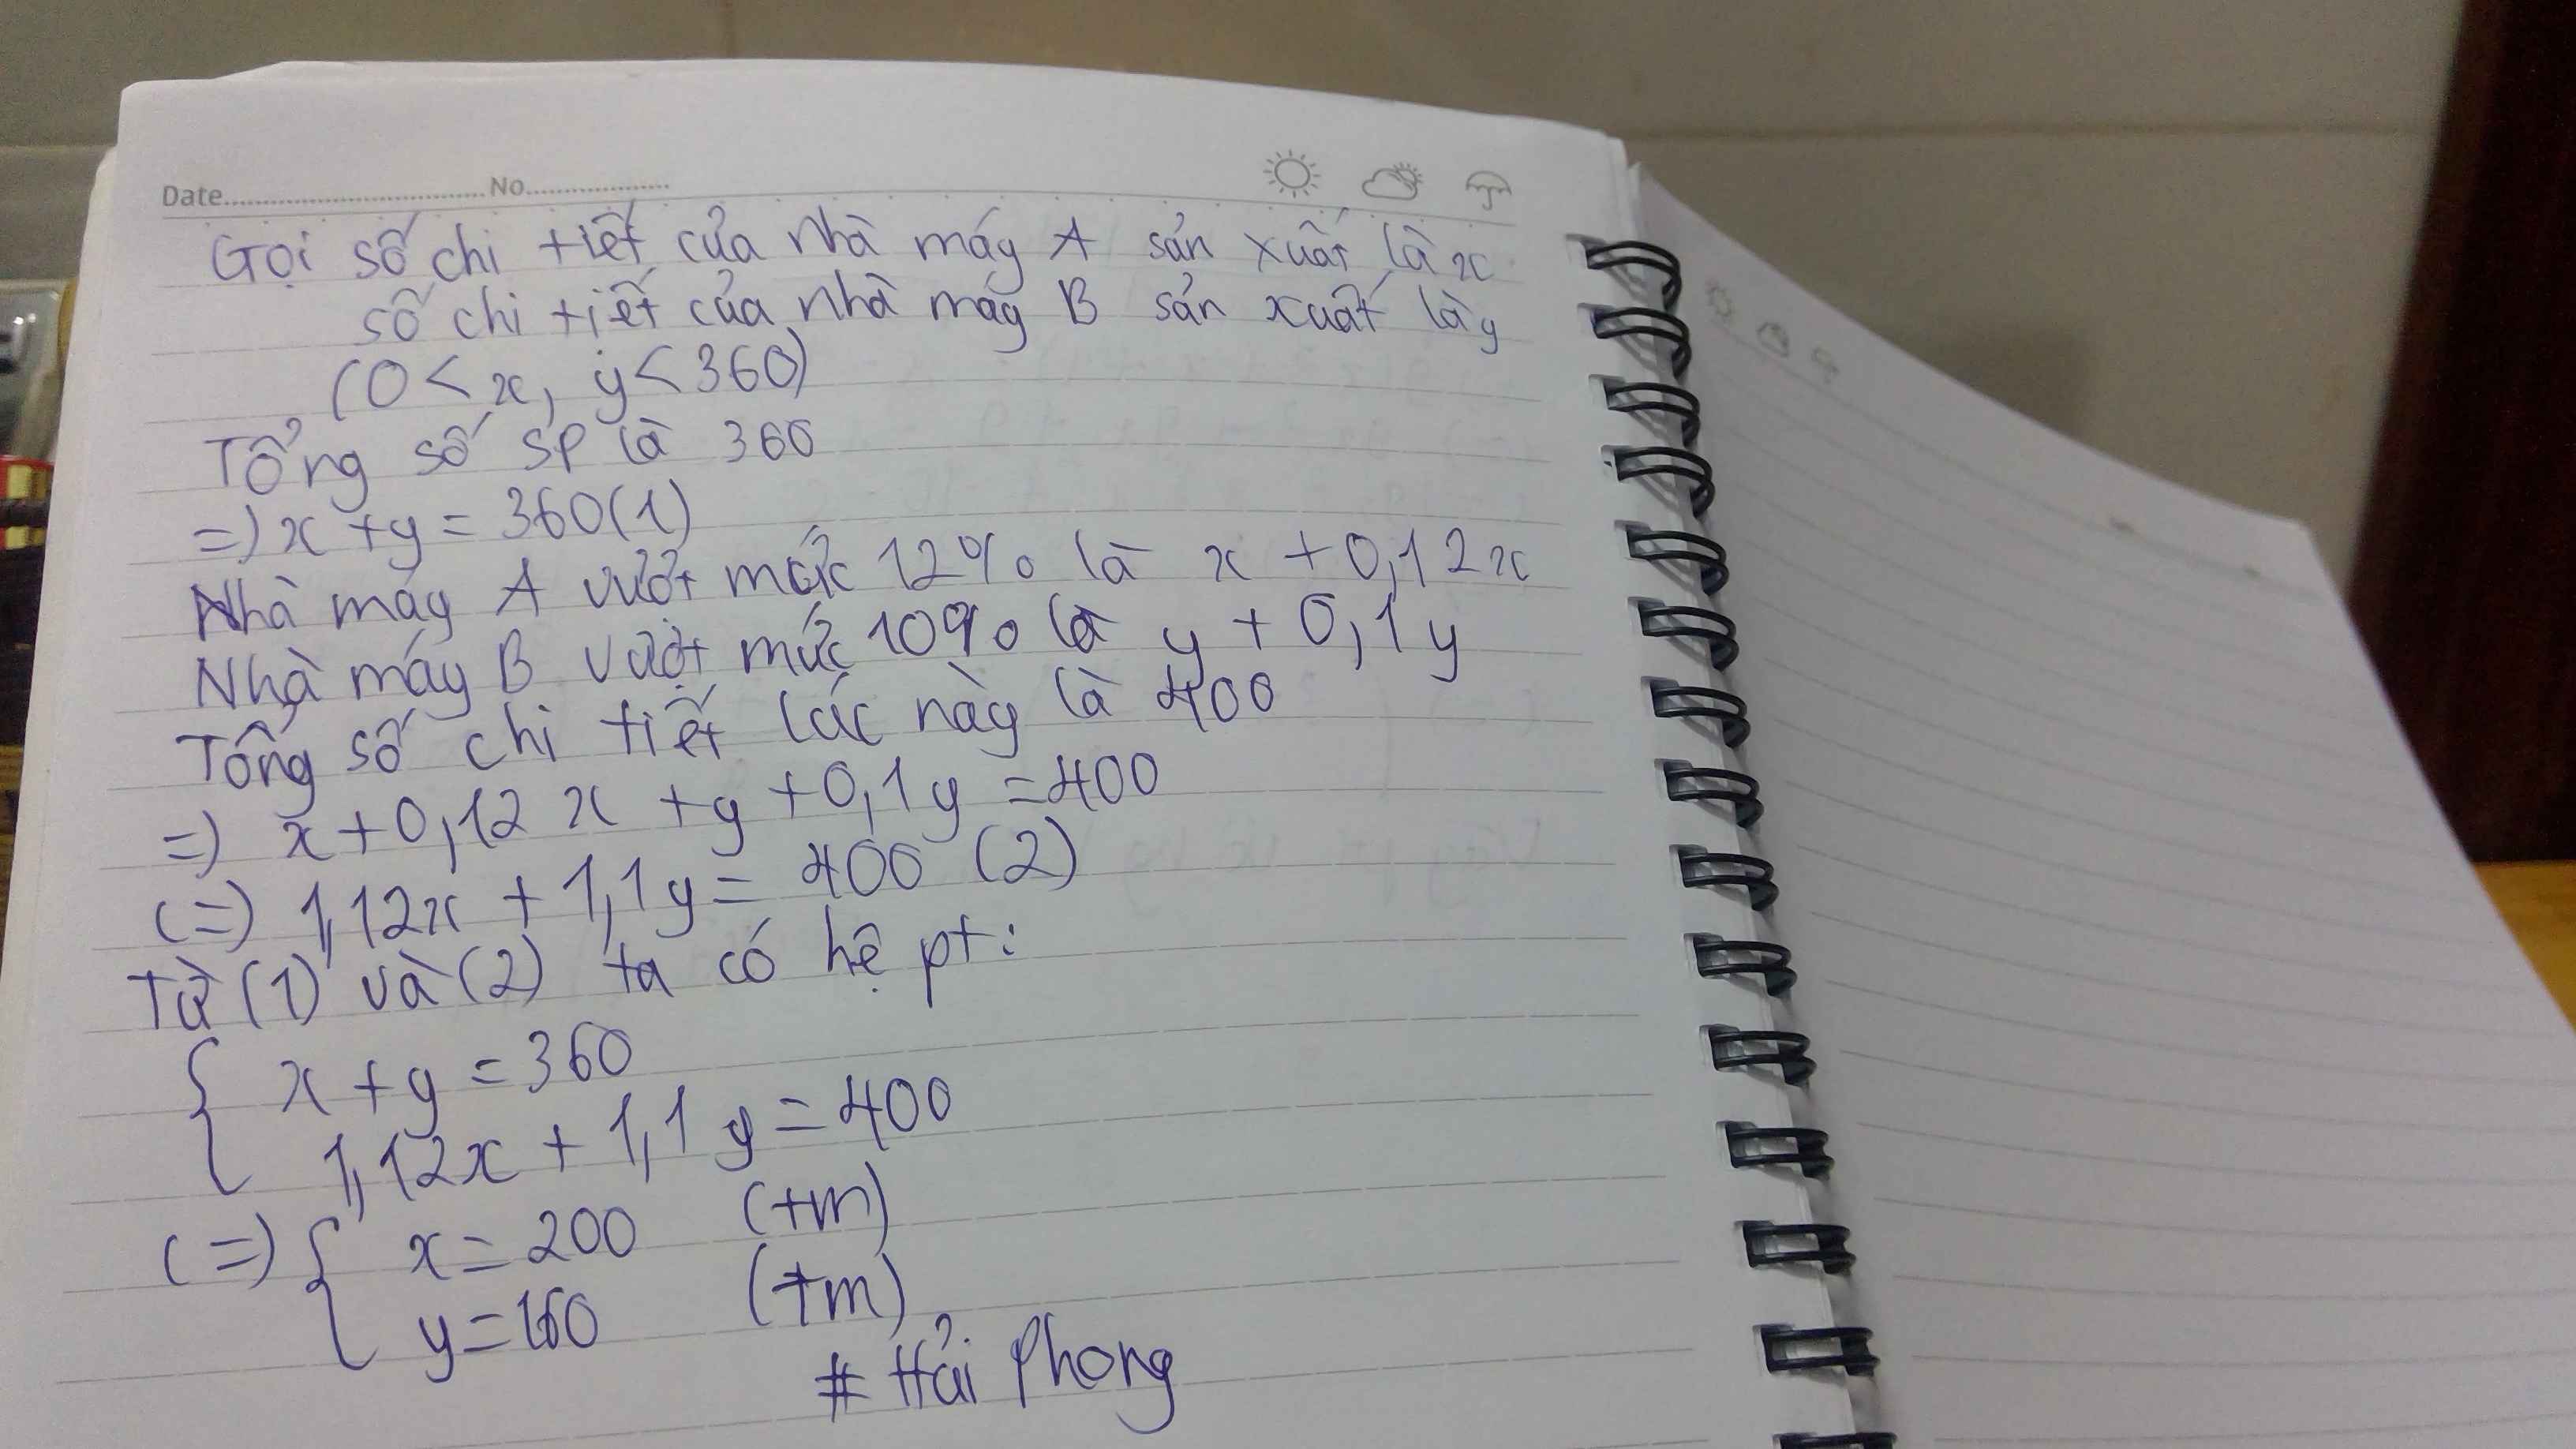 Date.............................No..................
Gọi số chi tiết của nhà máy A sản xuất là x
số chi tiết của nhà máy B sản xuất là y
(0 < x, y < 360)
Tổng số SP là 360
=) x + y = 360 (1)
Nhà máy A vượt mức 12% là x + 0,12x
Nhà máy B vượt mức 10% là y + 0,1y
Tổng số chi tiết lúc này là 400
=) x + 0,12 x + y + 0,1y = 400
(=) 1,12x + 1,1y = 400 (2)
Từ (1) và (2) ta có hệ pt:
{ x + y = 360
1,12x + 1,1y = 400
(=) { x = 200 (tm)
y = 160 (tm)
# Hải Phong